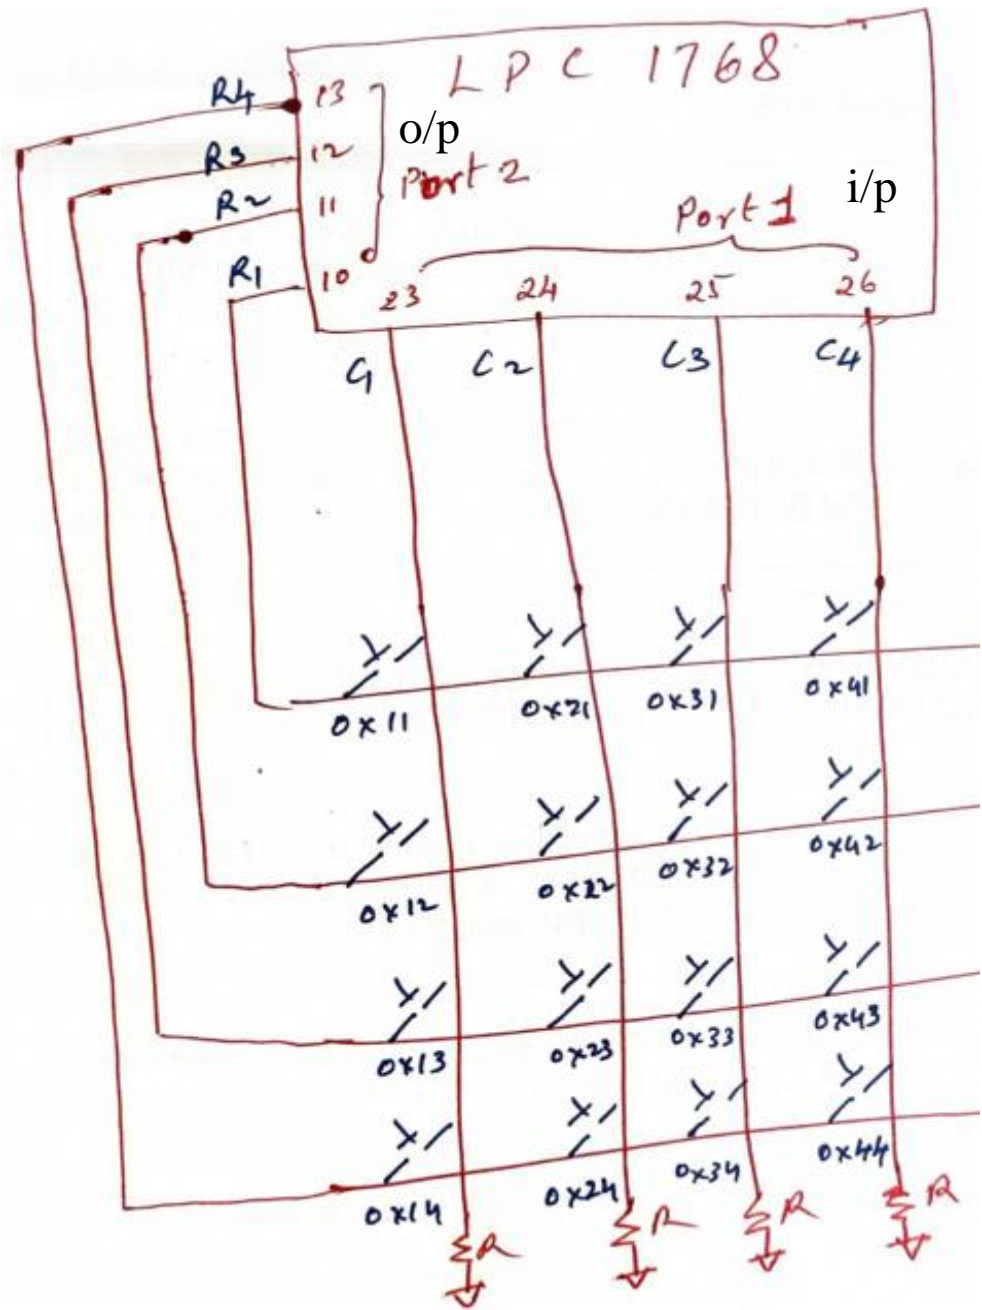 LPC 1768
R4 13
o/p
R3 12
Port 2
i/p
R2 11
Port 1
R1 10
23 24 25 26
C1 C2 C3 C4
0x11 0x21 0x31 0x41
0x12 0x22 0x32 0x42
0x13 0x23 0x33 0x43
0x14 0x24 0x34 0x44
R R R R